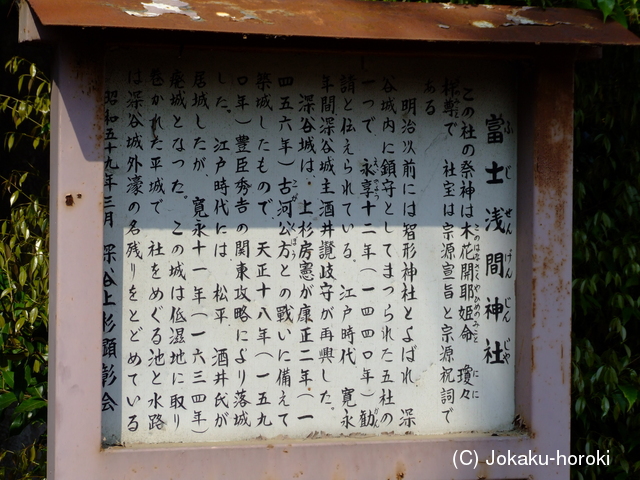 富士浅間神社
ふじせんげんじんじゃ
この社の祭神は木花開耶姫命 瓊々
このはなさやひめのみこと にに
杵尊で 社宝は宗源宣旨と宗源祝詞で
ある
明治以前には智形神社とよばれ 深
谷城内に鎮守としてまつられた五社の
一つで、永享十二年(一四四〇年)勧
請と伝えられている。江戸時代 寛永
年間深谷城主酒井讃岐守が再興した。
深谷城は、上杉房憲が康正二年(一
四五六年)古河公方との戦いに備えて
築城したもので、天正十八年(一五九
〇年)豊臣秀吉の関東攻略により落城
した。江戸時代には 松平 酒井氏が
居城したが、寛永十一年(一六三四年)
廃城となった。この城は低湿地に取り
巻かれた平城で 社をめぐる池と水路
は深谷城外濠の名残りをとどめている
昭和五十九年三月 深谷上杉顕彰会
(C) Jokaku-horoki